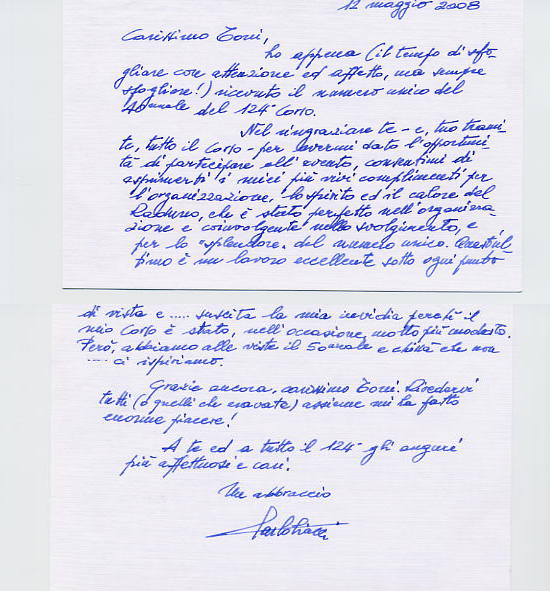 12 maggio 2008
Carissimo Toni,
ho appena (il tempo di sfo-
gliare con attenzione ed affetto, ma sempre
sfogliare!) ricevuto il numero unico del
40ennale del 124° Corso.
Nel ringraziare te - e, tuo trami-
te, tutto il Corso - per avermi dato l'opportuni-
tà di partecipare all'evento, consentimi di
esprimerti i miei più vivi complimenti per
l'organizzazione, lo spirito ed il calore del
Raduno, che è stato perfetto nell'organizza-
zione e coinvolgente nello svolgimento, e
per lo splendore del numero unico. Quest'ul-
timo è un lavoro eccellente sotto ogni punto
di vista e ..... suscita la mia invidia perché il
mio Corso è stato, nell'occasione, molto più modesto.
Però, abbiamo alle viste il 50ennale e chissà che non
.... ci ispiriamo.
Grazie ancora, carissimo Toni. Rivedervi
tutti (o quelli che eravate) assieme mi ha fatto
enorme piacere!
A te ed a tutto il 124° gli auguri
più affettuosi e cari.
Un abbraccio